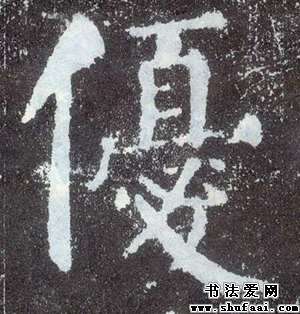 優
书法爱网
www.shufaai.com